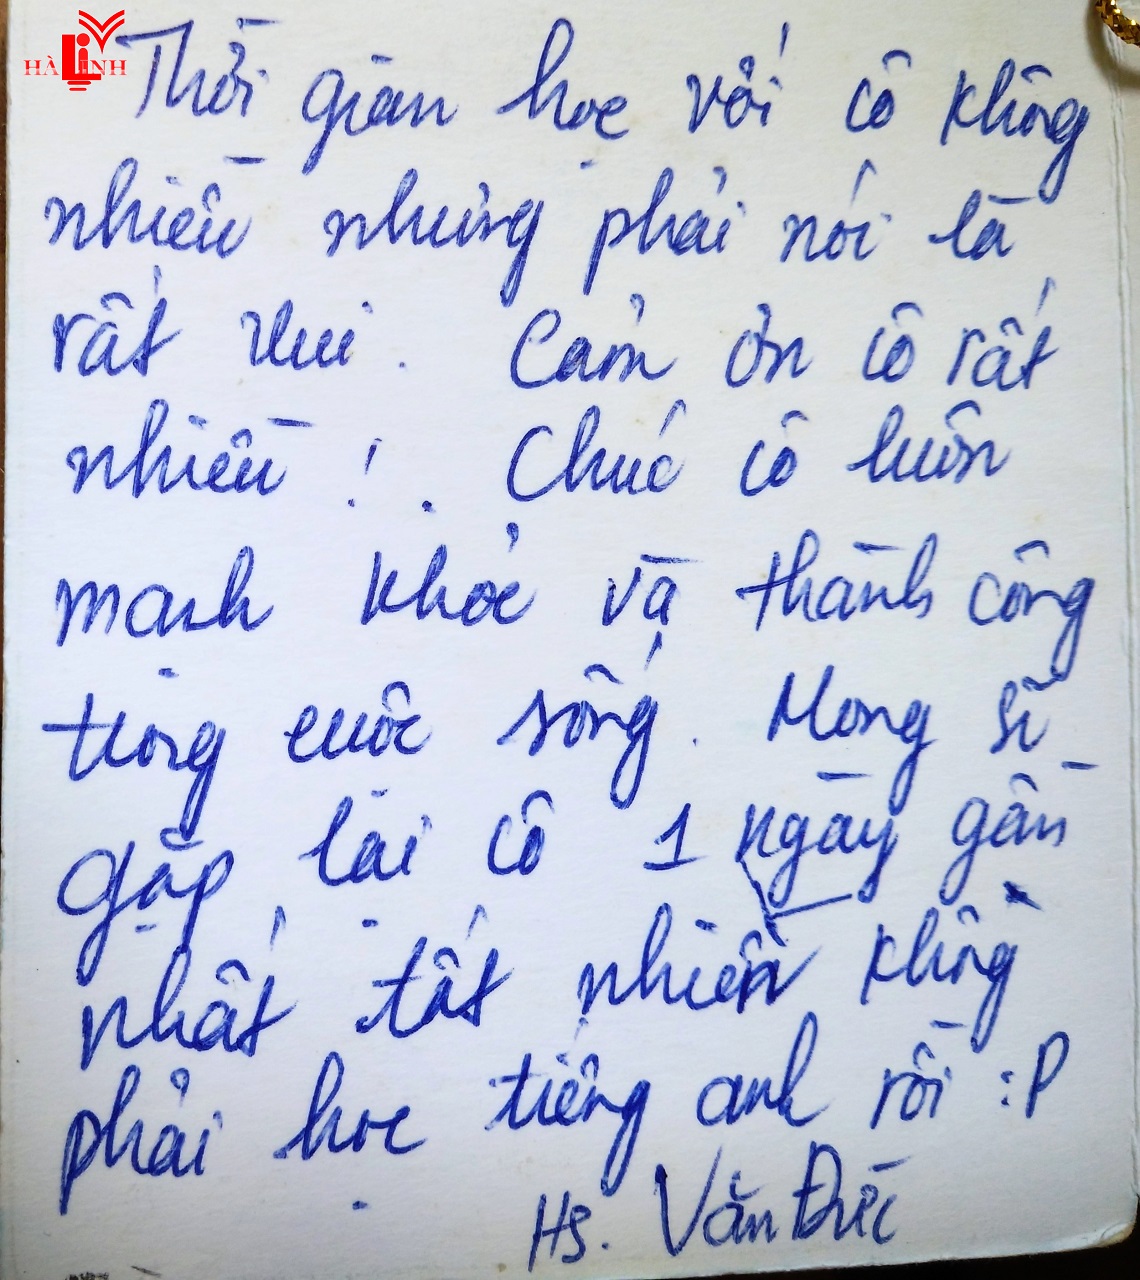 HÀ LINH
Thời gian học với cô không
nhiều nhưng phải nói là
rất vui. Cảm ơn cô rất
nhiều! . Chúc cô luôn
mạnh khỏe và thành công
trong cuộc sống. Mong sẽ
gặp lại cô 1 ngày gần
nhất tất nhiên không
phải học tiếng anh rồi :P
Hs. Văn Đức